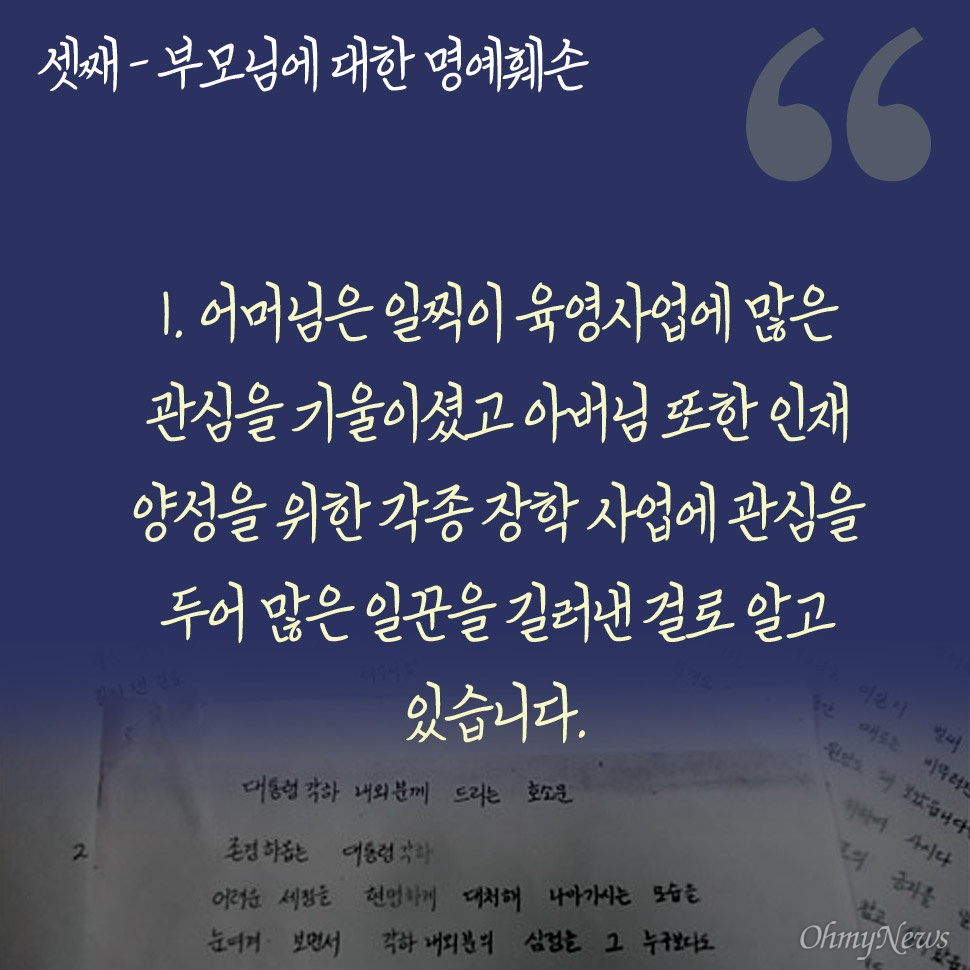 셋째 - 부모님에 대한 명예훼손
1. 어머님은 일찍이 육영사업에 많은
관심을 기울이셨고 아버님 또한 인재
양성을 위한 각종 장학 사업에 관심을
두어 많은 일꾼을 길러낸 걸로 알고
있습니다.
대통령 각하 내외분께 드리는 호소문
2
존경하옵는 대통령 각하
어려운 세정을 현명하게 대처해 나아가시는 모습을
눈여겨 보면서 각하 내외분의 심정을 그 누구보다도
OhmyNews